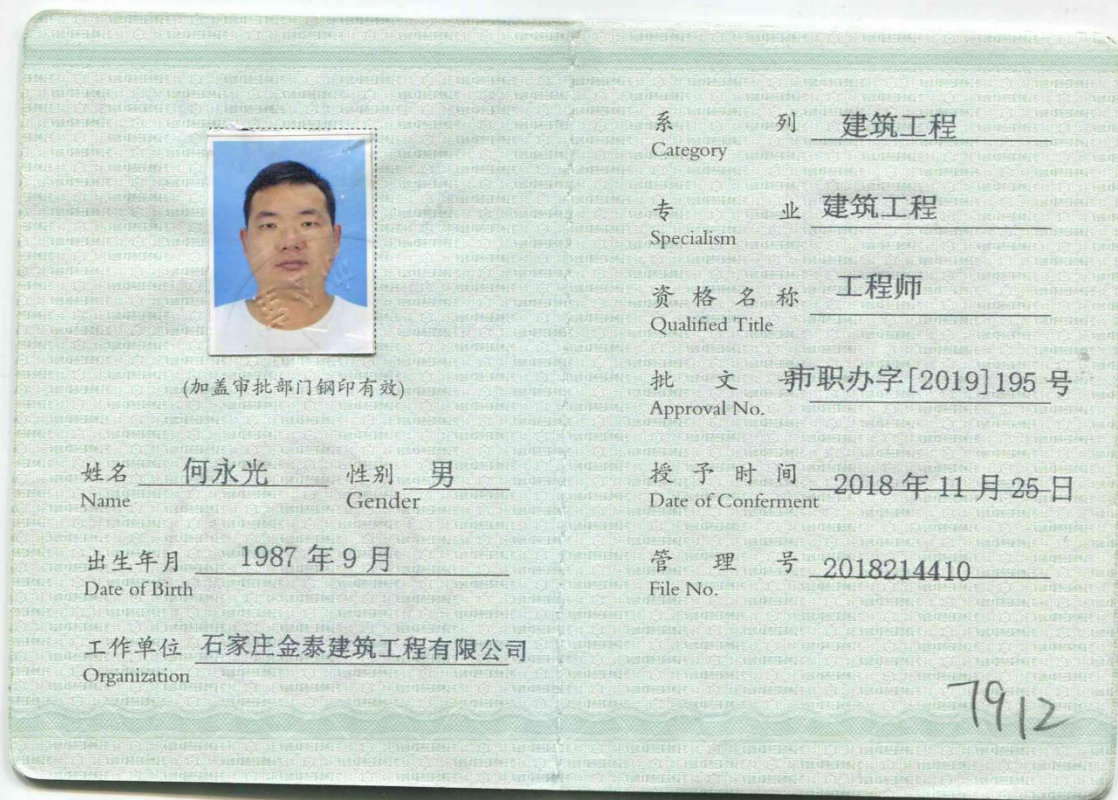 (加盖审批部门钢印有效)
姓名 何永光 性别 男
Name Gender
出生年月 1987 年 9 月
Date of Birth
工作单位 石家庄金泰建筑工程有限公司
Organization
系列 建筑工程
Category
专业 建筑工程
Specialism
资格名称 工程师
Qualified Title
批文号 市职办字[2019]195 号
Approval No.
授予时间 2018 年 11 月 25 日
Date of Conferment
管理号 2018214410
File No.
7912